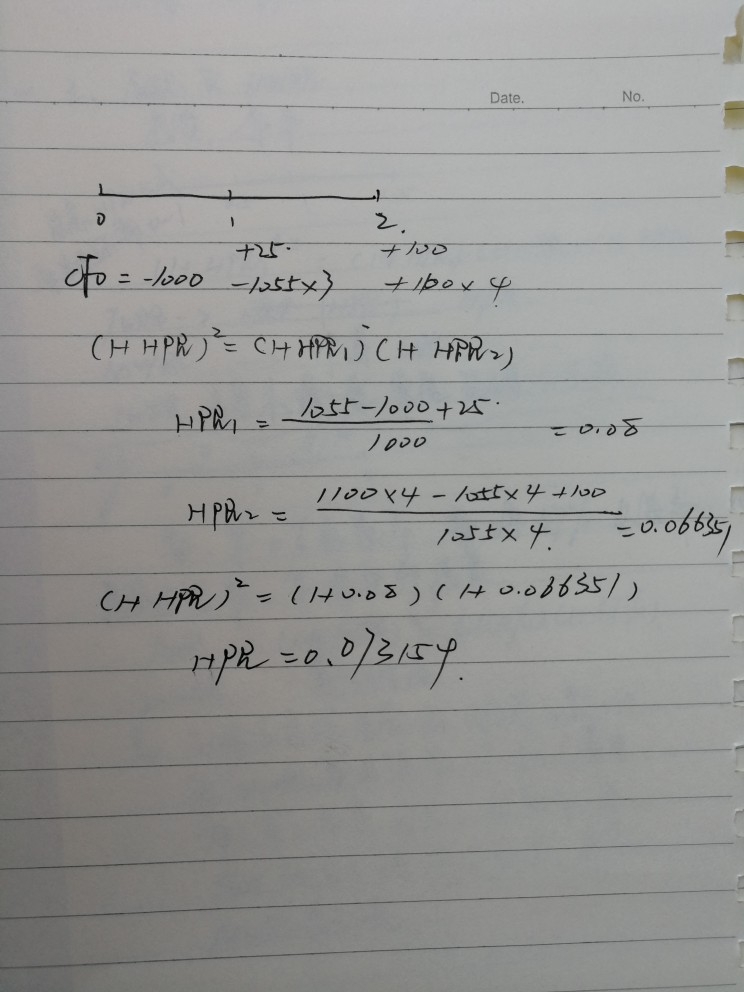 Date. No.
0 1 2.
+25. +100
CF0 = -1000 -1055×3 +1100×4
(1+HPR)² = (1+HPR₁)(1+HPR₂)
HPR₁ = (1055-1000+25)/1000 = 0.08
HPR₂ = (1100×4-1055×4+100)/(1055×4) = 0.066351
(1+HPR)² = (1+0.08)(1+0.066351)
HPR = 0.073154.